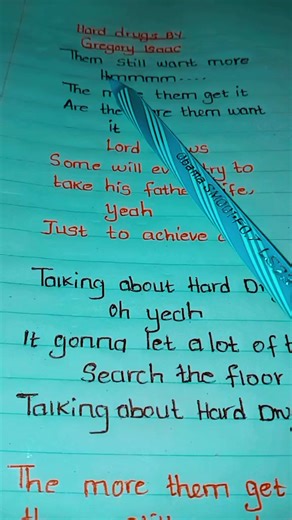 Hard drugs By
Gregory Isaac
Them still want more
Hmmmm....
The them get it
Are the them want
it
Lord
Some will to
take his father
yeah
Just to achieve
Talking about Hard
oh yeah
It gonna let a lot of
Search the floor
Talking about Hard
The more them get
Obama SMOOTH